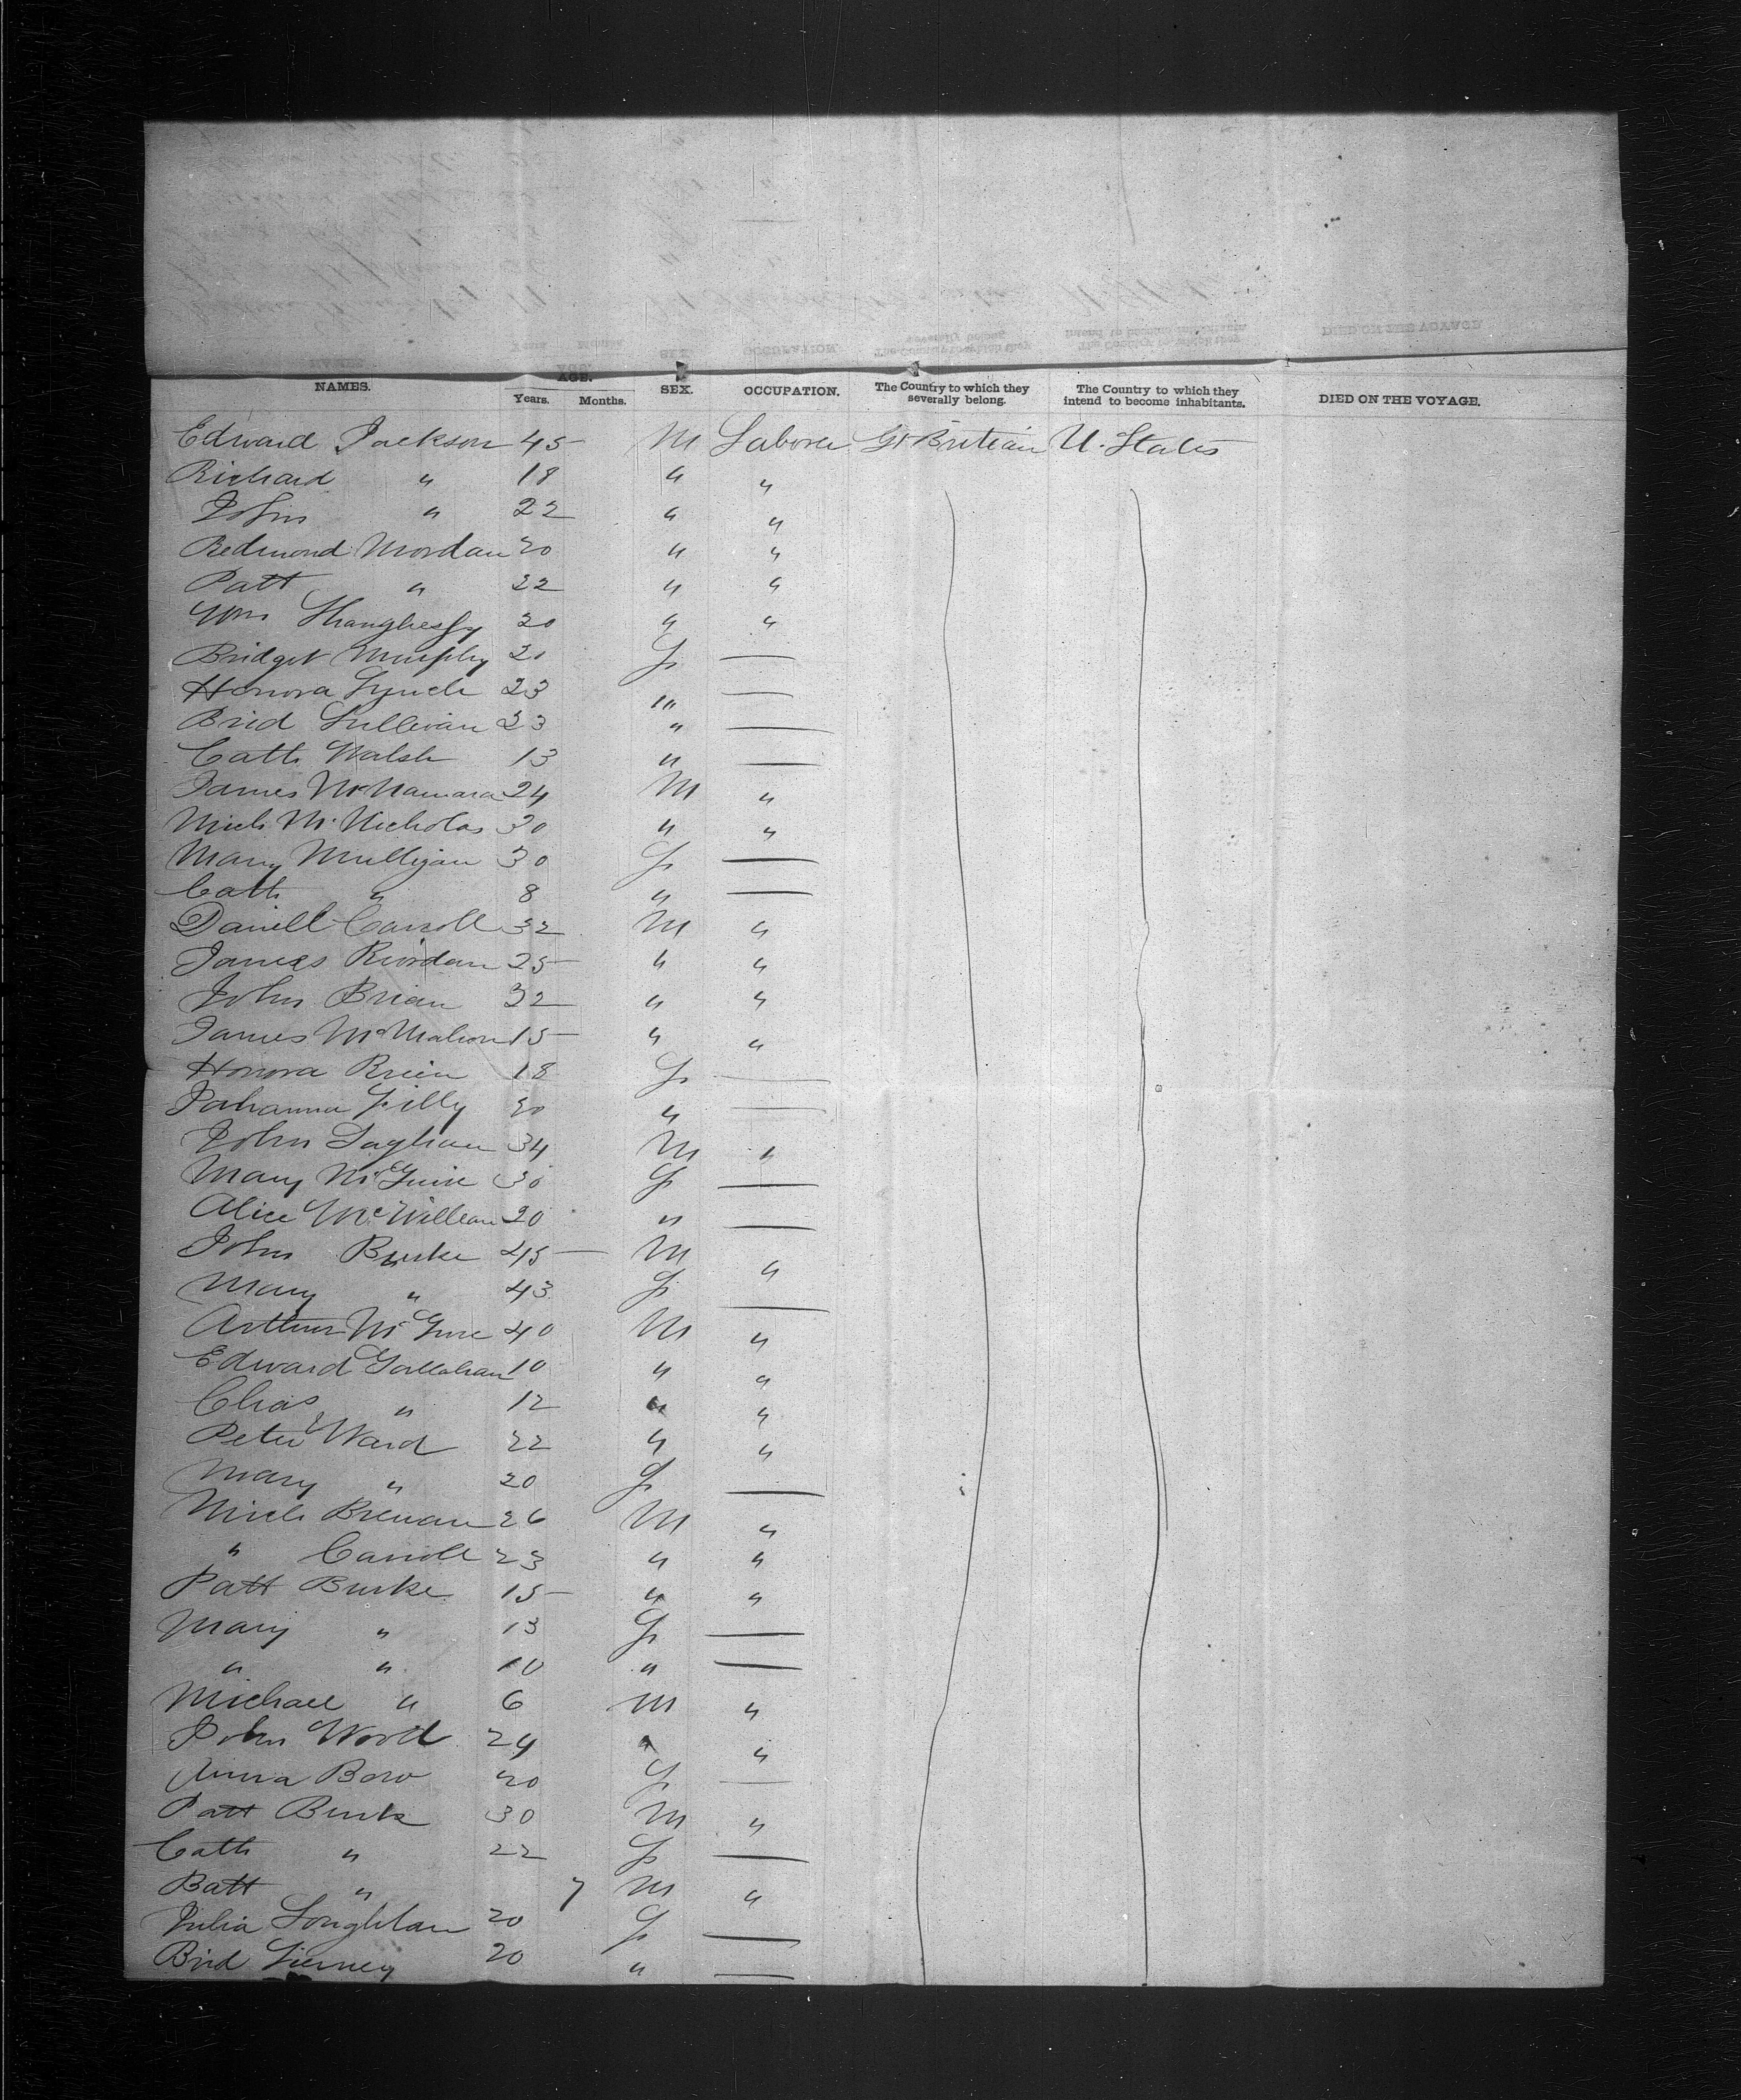 NAMES. AGE. Years. Months. SEX. OCCUPATION. The Country to which they severally belong. The Country to which they intend to become inhabitants. DIED ON THE VOYAGE.
Edward Jackson 45 M Laborer Gt Britain U. States
Richard " 18 " "
John " 22 " "
Redmond Mordan 20 " "
Patt " 22 " "
Wm 20 " "
Bridget Murphy 20 F —
Honora Lynch 23 " —
Brid Sullivan 23 " —
Cath Walsh 13 " —
James McNamara 24 M "
Mich McNicholas 30 " "
Mary Mulligan 30 F —
Cath " 8 " —
Daniell Carroll 32 M "
James Riordan 25 " "
John Brian 32 " "
James McMahon 15 " "
Honora Brien 18 F —
Johanna Lilly 20 " —
John 34 M "
Mary McGuire 30 F —
Alice McWillean 20 " —
John Burke 45 M "
Mary " 43 F —
Arthur McGure 40 M "
Edward Gallahan 10 " "
Chas " 12 " "
Peter Ward 22 " "
Mary " 20 F —
Mich Brenan 26 M "
" Carroll 23 " "
Patt Burke 15 " "
Mary " 13 F —
" " 10 " —
Michael " 6 M "
John Wood 24 " "
Anna Bow 20 F —
Patt Burk 30 M "
Cath " 22 F —
Batt " 7 M "
Julia Loughlan 20 F —
Brid Tierney 20 " —